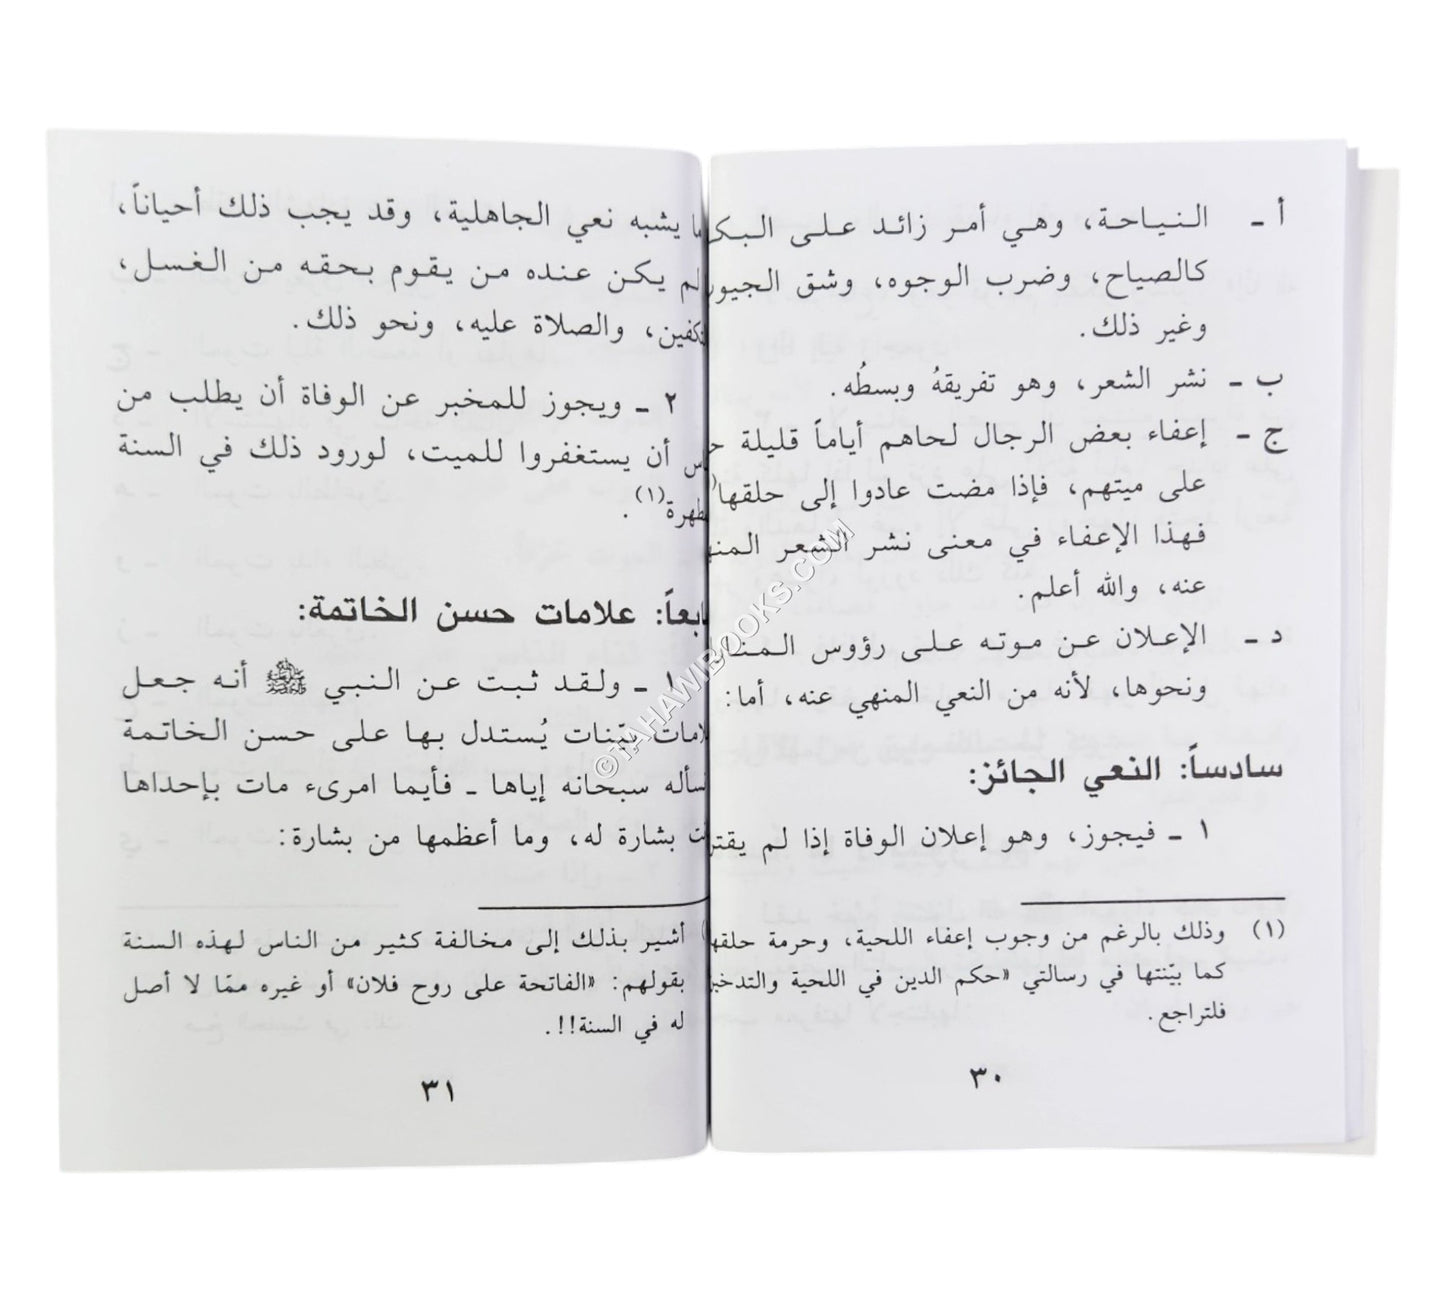 أ ـ النياحة، وهي أمر زائد على
كالصياح، وضرب الوجوه، وشق
وغير ذلك.
ب ـ نشر الشعر، وهو تفريقهُ وبسطُه.
ج ـ إعفاء بعض الرجال لحاهم أياماً قليلة
على ميتهم، فإذا مضت عادوا إلى حلقها
فهذا الإعفاء في معنى نشر الشعر
عنه، والله أعلم.
د ـ الإعلان عن موته على رؤوس
ونحوها، لأنه من النعي المنهي عنه، أما:
سادساً: النعي الجائز:
١ ـ فيجوز، وهو إعلان الوفاة إذا لم
(١) وذلك بالرغم من وجوب إعفاء اللحية، وحرمة حلقها
كما بيّنتها في رسالتي «حكم الدين في اللحية
فلتراجع.
٣٠
يشبه نعي الجاهلية، وقد يجب ذلك أحياناً،
لم يكن عنده من يقوم بحقه من الغسل،
والصلاة عليه، ونحو ذلك.
٢ ـ ويجوز للمخبر عن الوفاة أن يطلب من
أن يستغفروا للميت، لورود ذلك في السنة
(١).
علامات حسن الخاتمة:
١ ـ ولقد ثبت عن النبي ﷺ أنه جعل
بيّنات يُستدل بها على حسن الخاتمة
سبحانه إياها ـ فأيما امرىء مات بإحداها
بشارة له، وما أعظمها من بشارة:
أشير بذلك إلى مخالفة كثير من الناس لهذه السنة
بقولهم: «الفاتحة على روح فلان» أو غيره ممّا لا أصل
له في السنة!!.
٣١
©TAHAWIBOOKS.COM